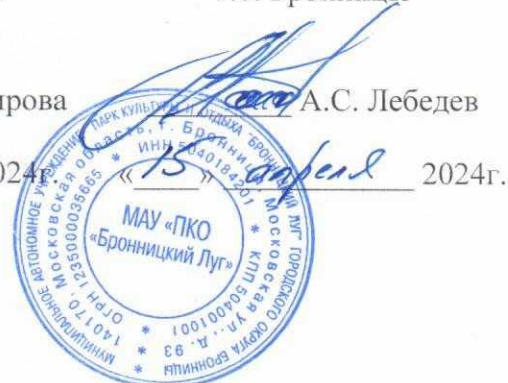 ирова А.С. Лебедев
2024г. «15» апреля 2024г.
МУНИЦИПАЛЬНОЕ АВТОНОМНОЕ УЧРЕЖДЕНИЕ "ПАРК КУЛЬТУРЫ И ОТДЫХА "БРОННИЦКИЙ ЛУГ" ГОРОДСКОГО ОКРУГА БРОННИЦЫ
140170, Московская область, г. Бронницы, Московская ул., д. 93
ОГРН 1235000035665 * ИНН 5040184201 * КПП 504001001 *
МАУ «ПКО
«Бронницкий Луг»